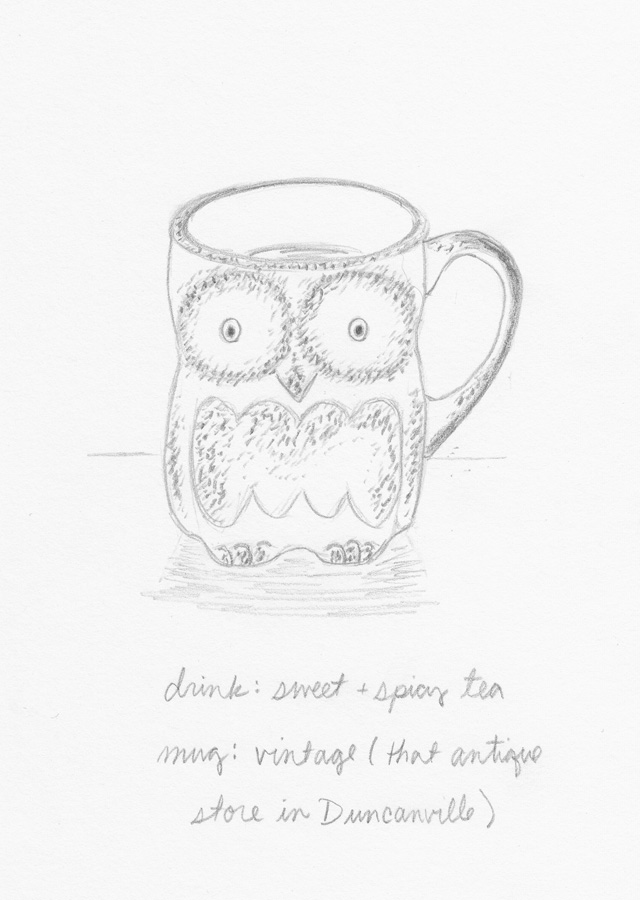 drink: sweet + spicy tea
mug: vintage (that antique
store in Duncanville)